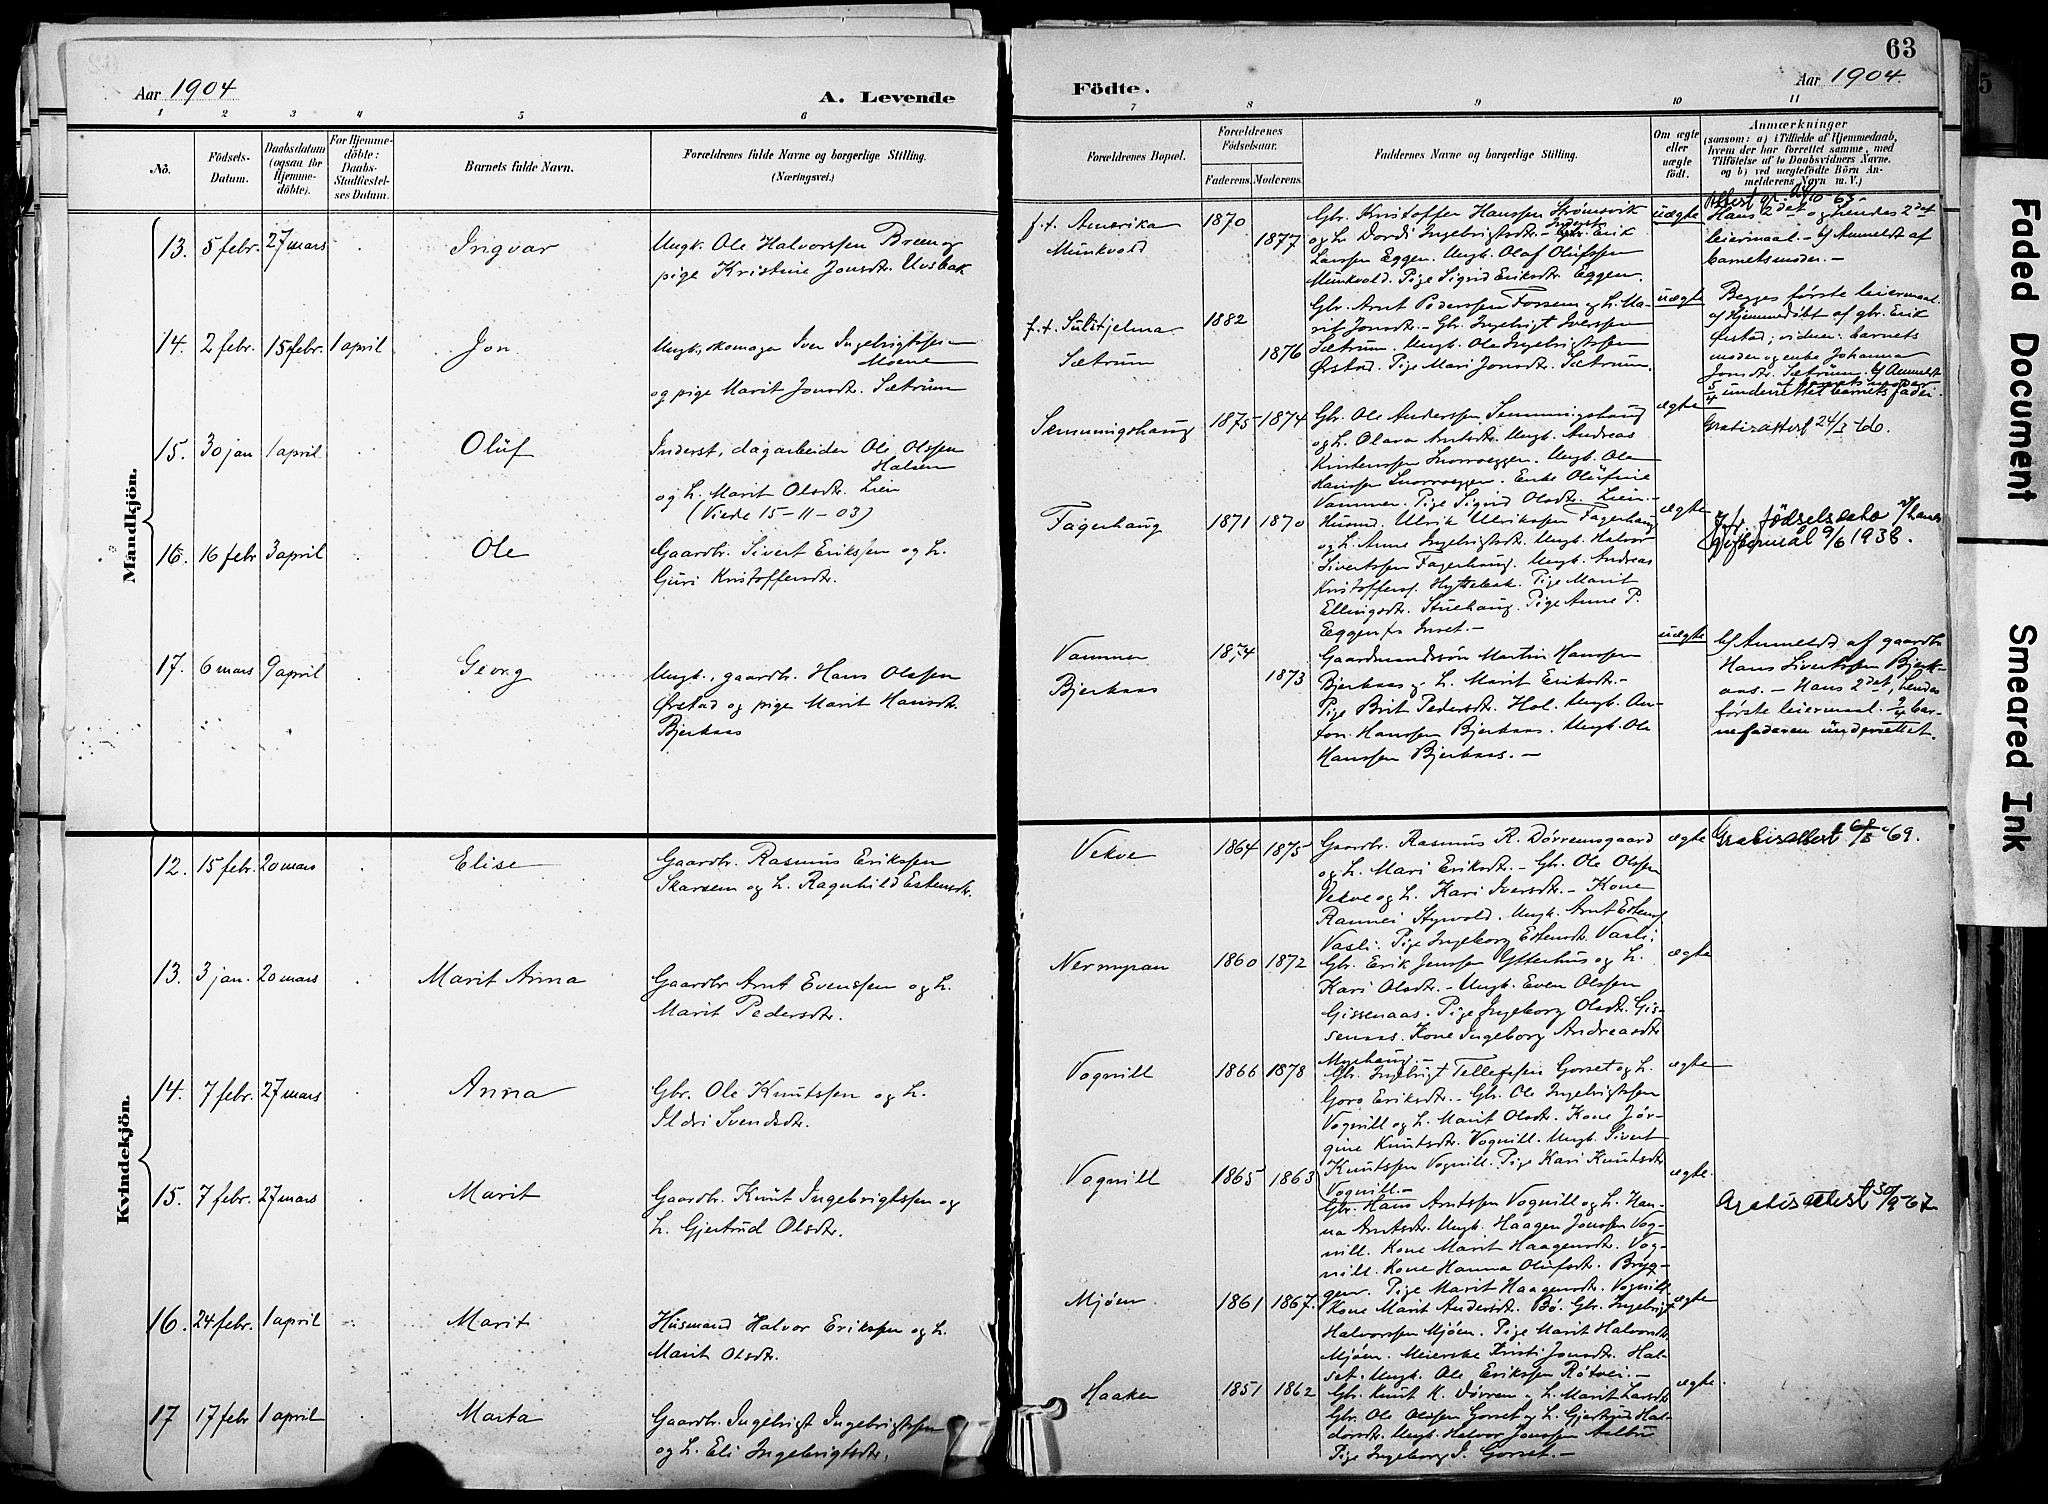 63
Aar 1904
A. Levende
Födte.
Aar 1904.
1 2 3 4 5 6 7 8 9 10 11
No.
Födsels-
Datum.
Daabsdatum
(ogsaa för
Hjemme-
döbte).
For Hjemme-
döbte:
Daabs-
Stadfæstel-
ses Datum.
Barnets fulde Navn.
Forældrenes fulde Navne og borgerlige Stilling.
(Næringsvei.)
Forældrenes Bopæl.
Forældrenes
Födselsaar.
Faderens. Moderens.
Faddernes Navne og borgerlige Stilling.
Om ægte
eller
uægte
födt.
Anmærkninger
(saasom: a) i Tilfælde af Hjemmedaab,
hvem der har forrettet samme, med
Tilföielse af to Daabsvidners Navne.
og b) ved uægtefödte Börn An-
melderens Navn m. V.)
Mandkjön.
13. 5 febr. 27 mars
Ingvar
Ungk. Ole Halvorssen Breen og
pige Kristine Jonsdtr. Uvsbak
f.t. Amerika
Munkvold
1870
1877
Gbr. Kristoffer Hanssen Strømsvik
og h. Dordi Ingebrigtsdtr. Erik
Larssen Eggen. Ungk. Olaf Olufssen
Munkvold. Pige Sigrid Eriksdtr. Eggen.
uægte
Hans 2det og hendes 2det
leiermaal. - b) Anmeldt af
barnets moder. -
14. 2 febr. 15 febr. 1 april
Jon
Ungk., skomager Iver Ingebrigtssen
Moene
og pige Marit Jonsdtr. Sætrum
f.t. Sulitjelma
Sætrum
1882
1876
Gbr. Arnt Pederssen Fossem og h. Ma-
rit Jonsdtr. - Gbr. Ingebrigt Iverssen
Sætrum. Ungk. Ole Ingebrigtssen
Ørstad. Pige Mari Jonsdtr. Sætrum.
uægte
Begges første leiermaal.
a) Hjemmedøbt af gbr. Erik
Ørstad; vidner: barnets
moder og enke Johanna
Jonsdtr. Sætrum. b) Anmeldt
af barnets moder
5/4 underrettet barnets fader.
15. 30 jan 1 april
Oluf
Inderst, dagarbeider Ole Olssen
Halsen
og h. Marit Olsdtr. Lien
(Viede 15-11-03)
Semmingshaug
1875 1874
Gbr. Ole Anderssen Semmingshaug
og h. Olava Arntsdtr. Ungk. Andreas
Kristenssen Snorroeggen. Ungk. Ole
Hanssen Snorroeggen. Enke Olufine
Vammer. Pige Sigrid Olsdtr. Lien. -
ægte
Gratisattest 24/1-66.
16. 16 febr 3 april
Ole
Gaardbr. Sivert Erikssen og h.
Guri Kristoffersdtr.
Fagerhaug
1871 1870
Husmd. Ulrik Ulrikssen Fagerhaug
og h. Anne Ingebrigtsdtr. Ungk. Halvor
Sivertssen Fagerhaug. Ungk. Andreas
Kristofferss. Hyttebak. Pige Marit
Ellingsdtr. Stuehaug. Pige Anne P.
Eggen fra Inset. -
ægte
Jfr. fødselsdato v/hans
giftermål 9/6 1938.
17. 6 mars 9 april
Georg
Ungk., gaardbr. Hans Olssen
Ørstad og pige Marit Hansdtr.
Bjerkaas
Vammer
Bjerkaas
1874
1873
Gaardmandssøn Martin Hanssen
Bjerkaas og h. Marit Eriksdtr. -
Pige Brit Pedersdtr. Hol. Ungk. An-
fon. Hanssen Bjerkaas. Ungk. Ole
Hanssen Bjerkaas. -
uægte
b) Anmeldt af gaardbr.
Hans Sivertssen Bjerk-
aas. - Hans 2det, hendes
første leiermaal. 9/4 bar-
nefaderen underrettet.
Kvindekjön.
12. 15 febr. 20 mars
Elise
Gaardbr. Rasmus Erikssen
Skarsem og h. Ragnhild Estensdtr.
Vekve
1864 1875
Gaardbr. Rasmus R. Dørremsgaard
og h. Mari Eriksdtr. - Gbr. Ole Olssen
Vekve og h. Kari Iversdtr. - Kone
Rannei Stynvold. Ungk. Arnt Estens.
Vasli. Pige Ingeborg Estensdtr. Vasli.
ægte
Gratisattest '69.
13. 3 jan. 20 mars
Marit Anna
Gaardbr Arnt Evenssen og h.
Marit Pedersdtr.
Nermyran
1860 1872
Gbr. Erik Jenssen Ytterhus og h.
Kari Olsdtr. - Ungk. Even Olssen
Gissenaas. Pige Ingeborg Olsdtr. Gis-
senaas. Kone Ingeborg Andreasdtr
Myrhaug. -
ægte
14. 7 febr. 27 mars
Anna
Gbr. Ole Knutssen og h.
Ildri Svendsdtr.
Vognill
1866 1878
Gbr. Ingebrigt Tellefssen Gorset og h.
Goro Eriksdtr. - Gbr. Ole Ingebrigtssen
Vognill og h. Marit Olsdtr. Kone Jør-
gine Knutsdtr. Vognill. Ungk. Sivert
Knutssen Vognill. Pige Kari Knutsdtr
Vognill. -
ægte
15. 7 febr. 27 mars
Marit
Gaardbr. Knut Ingebrigtssen og
h. Gjertrud Olsdtr.
Vognill
1865 1863
Gbr. Hans Arntssen Vognill og h. Han-
na Arntsdtr. Ungk. Haagen Jonssen Vog-
nill. Kone Marit Haagensdtr. Vog-
nill. Kone Hanna Olufsdtr. Bryg-
gen. Pige Marit Haagensdtr. Vognill.
ægte.
Gratisattest 30/9-67
16. 24 febr. 1 april
Marit
Husmand Halvor Erikssen og h.
Marit Olsdtr.
Mjøen
1861 1867.
Kone Marit Andersdtr. Bø. Gbr. Ingebrigt
Halvorssen Mjøen. Pige Marit Halvorsdtr
Mjøen. Meierske Kristi Jonsdtr. Hal-
set. Ungk. Ole Erikssen Røtvei. -
ægte
17 17 febr 1 april
Marta
Gaardbr. Ingebrigt Ingebrigtssen
og h. Eli Ingebrigtsdtr.
Haaker
1851 1862
Gbr. Knut K. Dørren og h. Marit Larsdtr
Gbr. Ole Olssen Gorset og h. Gjertrud Hal-
dorsdtr. Ungk. Halvor Jonssen Aalbu
Pige Ingeborg I. Gorset. -
ægte.
Faded Document
Smeared Ink